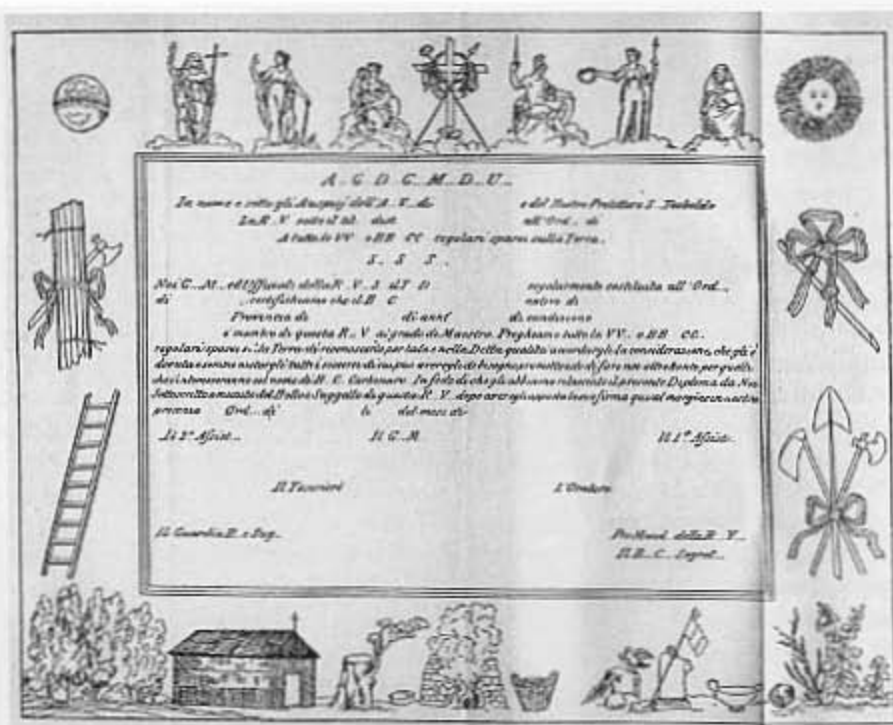 A.. G.. D.. G.. M.. D.. U..
In nome e sotto gli Auspicj dell'A.. V.. di e del Nostro Protettore S.. Teobaldo
La R.. V.. sotto il tit.. dist all'Ord.. di
A tutte le VV.. e BB.. CC.. regolari sparsi sulla Terra..
S.. S.. S..
Noi G.. M.. ed Officiali della R.. V.. S.. il T.. D.. regolarmente costituita all'Ord..
di certifichiamo che il B.. C.. nativo di
Provincia di di anni di condizione
è membro di questa R.. V.. al grado di Maestro. Preghiamo tutte le VV.. e BB.. CC..
regolari sparsi su la Terra di riconoscerlo per tale e nella Detta qualità accordargli la considerazione, che gli è
dovuta e somministrargli tutti i soccorsi di cui possa avergli di bisogno, promettendo di fare noi altrettanto per quelli
che si al nome di B.. C.. Carbonaro. In fede di che gli abbiamo rilasciato il presente Diploma da Noi
Sottoscritto e munito del Bollo e Suggello di questa R.. V.. dopo avergli apposta la sua firma qual margine in nostra
presenza Ord.. di li del mese di
Il 2º Assist.. Il G.. M.. Il 1º Assist..
Il Tesoriere L'Oratore
Il Guarda B.. e Sug.. Per Mand.. della R.. V..
Il B.. C.. Segret..